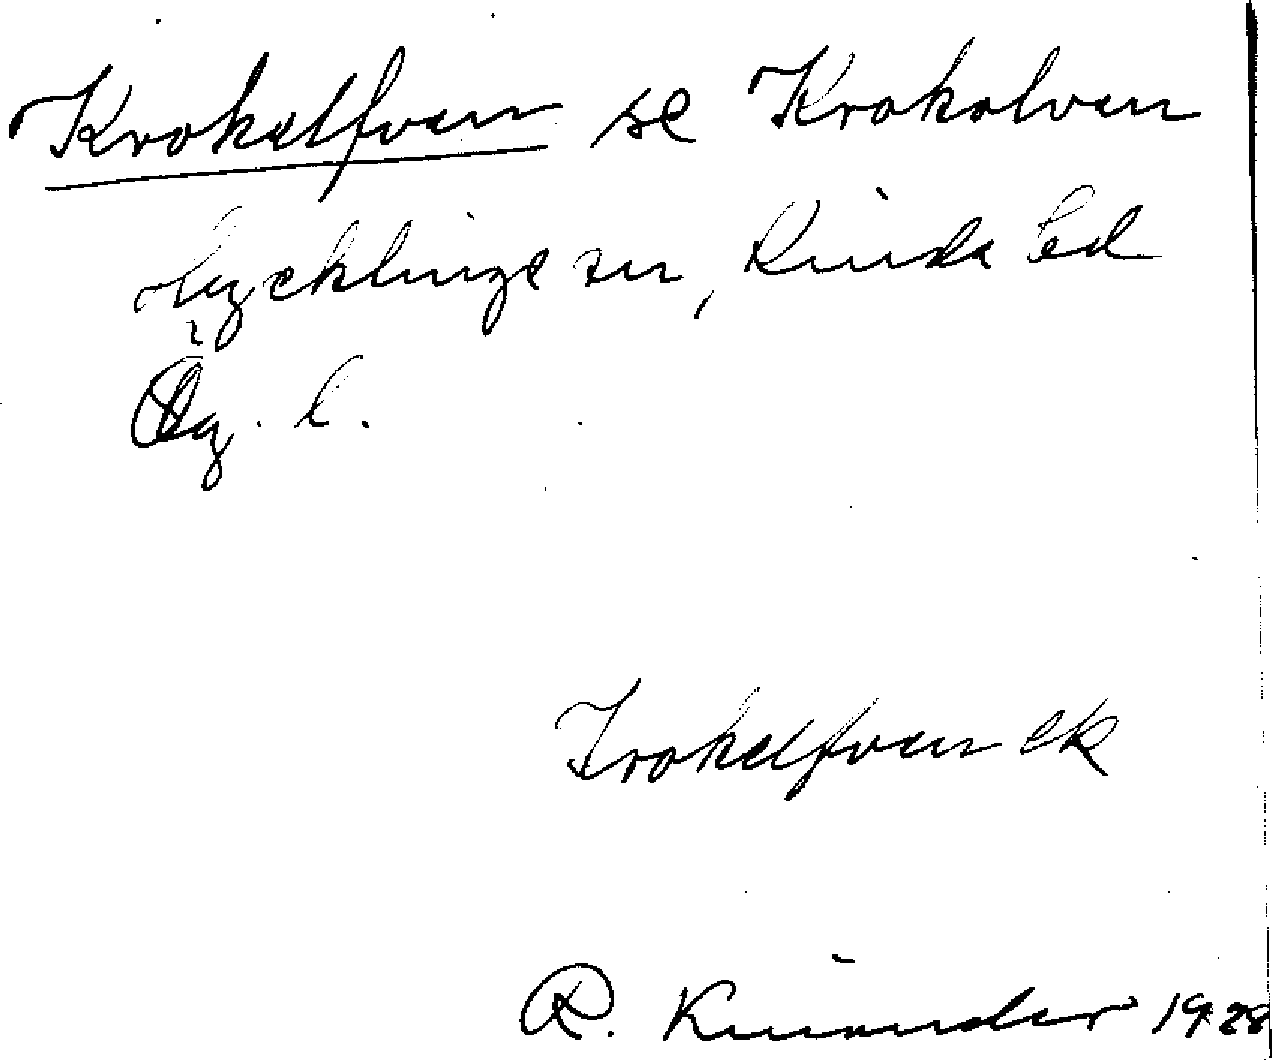 Krokelfven se Krokolven
Tycklinge sn, Kinda hd
Ög. l.
Krokelfven ek
R. Kinander 1928